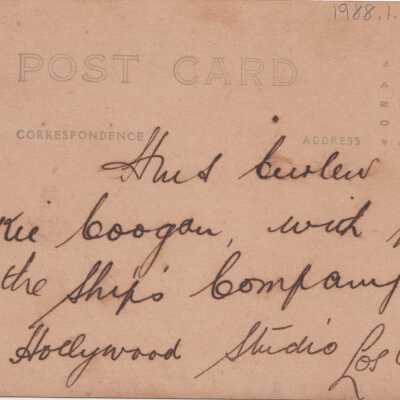 1988.1.
POST CARD
CORRESPONDENCE ADDRESS
HMS Curlew
kie Coogan, with
the Ship's Company
Hollywood Studio Los